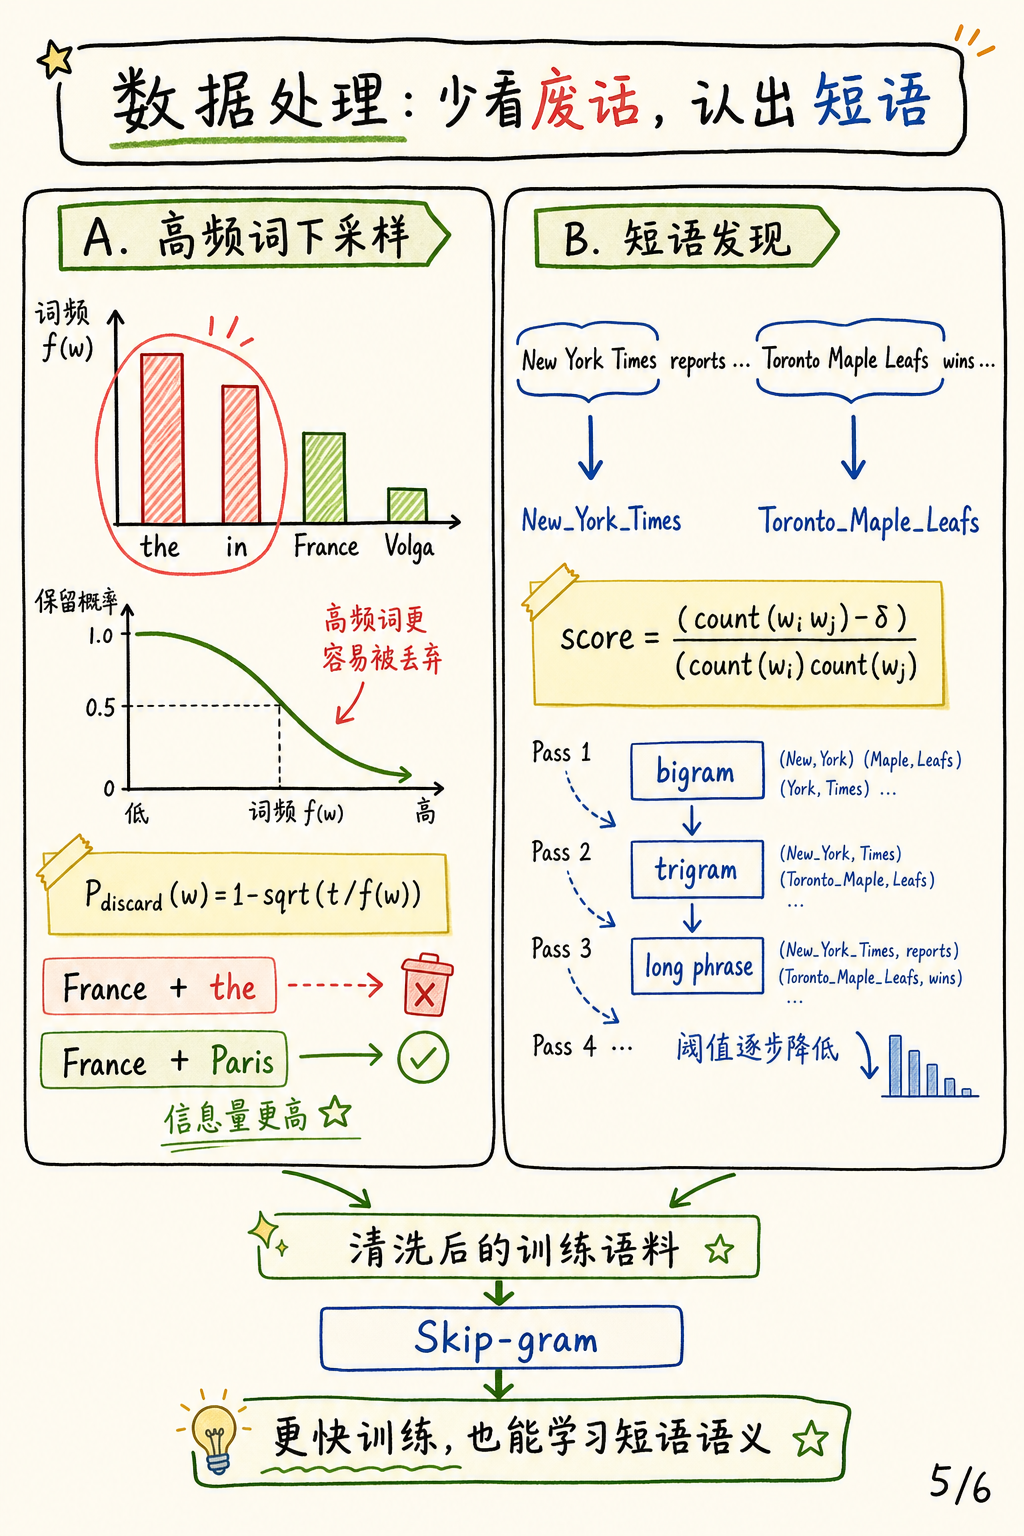 数据处理：少看废话，认出短语
A. 高频词下采样
词频
f(w)
the in France Volga
保留概率
1.0
0.5
0
低 词频 f(w) 高
高频词更
容易被丢弃
P_discard (w) = 1 - sqrt (t / f(w))
France + the
France + Paris
信息量更高
B. 短语发现
New York Times reports ... Toronto Maple Leafs wins ...
New_York_Times Toronto_Maple_Leafs
score = (count (w_i w_j) - δ) / (count (w_i) count (w_j))
Pass 1 bigram (New, York) (Maple, Leafs)
(York, Times) ...
Pass 2 trigram (New_York, Times)
(Toronto_Maple, Leafs)
...
Pass 3 long phrase (New_York_Times, reports)
(Toronto_Maple_Leafs, wins)
...
Pass 4 ... 阈值逐步降低
清洗后的训练语料
Skip-gram
更快训练，也能学习短语语义
5/6